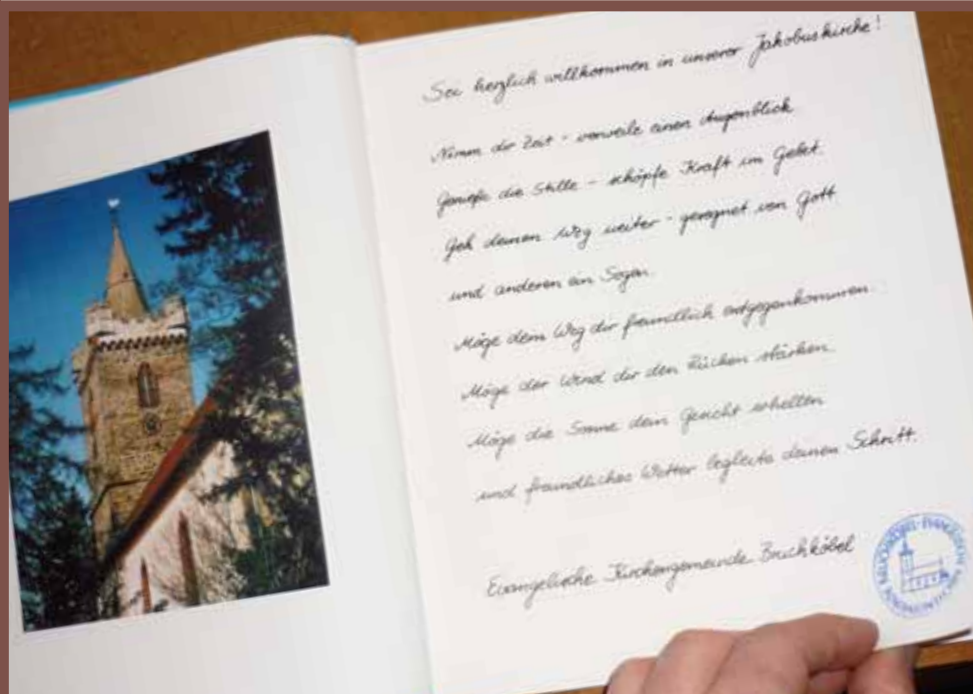 Sei herzlich willkommen in unserer Jakobuskirche!
Nimm dir Zeit - verweile einen Augenblick
Genieße die Stille - schöpfe Kraft im Gebet.
Geh deinen Weg weiter - gesegnet von Gott
und anderen ein Segen.
Möge dein Weg dir freundlich entgegenkommen.
Möge der Wind dir den Rücken stärken.
Möge die Sonne dein Gesicht erhellen
und freundliches Wetter begleite deinen Schritt.
Evangelische Kirchengemeinde Bruchköbel